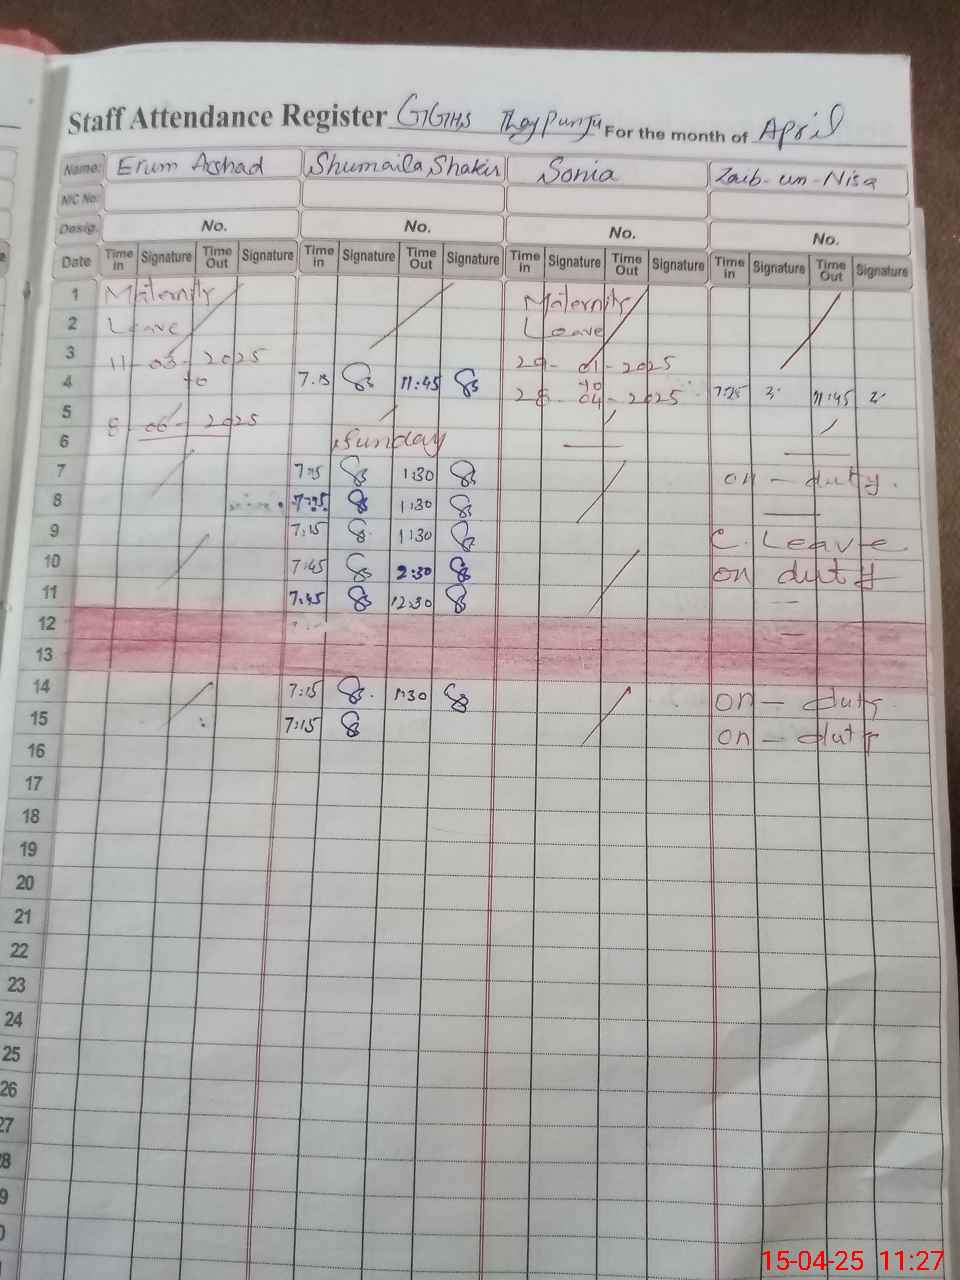 Staff Attendance Register GGHS For the month of April
Name: Erum Arshad Shumaila Shakir Sonia Zaib-un-Nisa
NIC No:
Desig. No. No. No. No.
Date Time in Signature Time Out Signature Time in Signature Time Out Signature Time in Signature Time Out Signature Time in Signature Time Out Signature
1 Maternity Maternity
2 Leave Leave
3 11-03-2025 29-01-2025
4 to 7:15 11:45 to 28-04-2025 7:25 11:45
5 8-06-2025
6 Sunday
7 7:15 1:30 on - duty.
8 7:15 1:30
9 7:15 1:30 C. Leave
10 7:45 2:30 on duty
11 7:45 12:30
12
13
14 7:15 1:30 on - duty
15 7:15 on - duty
16
17
18
19
20
21
22
23
24
25
26
27
28
15-04-25 11:27